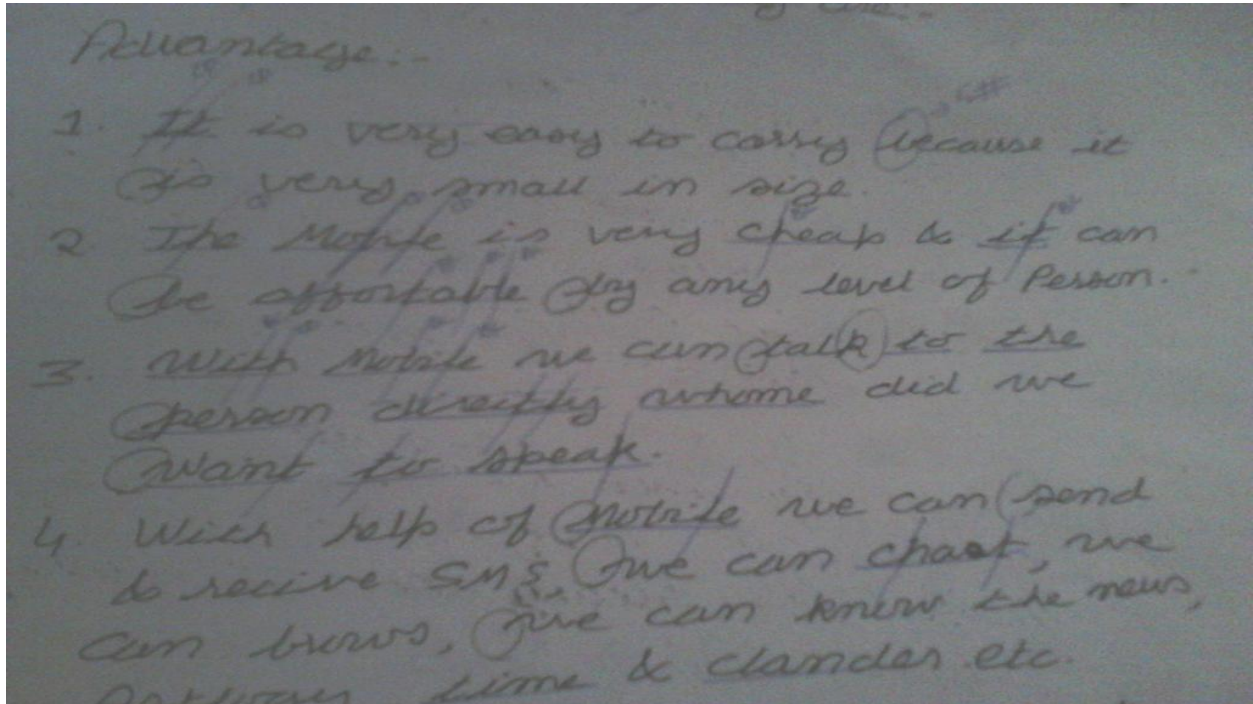 Advantage:-
1. It is very easy to carry because it
is very small in size.
2 The Mobile is very cheap & it can
be affortable by any level of Person.
3. With Mobile we can talk to the
person directly whome did we
want to speak.
4. With help of Mobile we can send
& recive SMS, we can chaet, we
can brows, we can know the news,
time & clander etc.